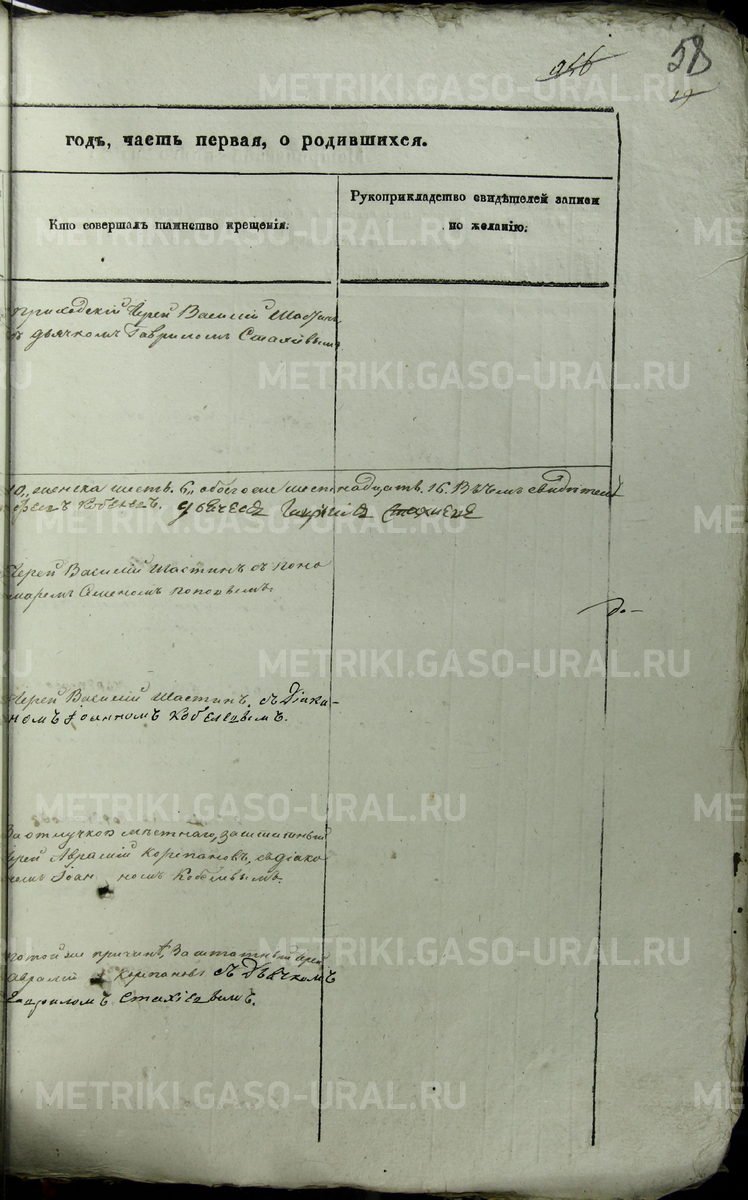 58
годъ, часть первая, о родившихся.
Кто совершалъ таинство крещенія.
Рукоприкладство свидѣтелей записи
по желанію.
приходскій Іерей Василій Шастинъ
съ дьячкомъ Гавриломъ Стахіевымъ
10, женска шесть. 6, обоего же шестнадцать. 16. Въ чемъ свидѣтел
Кобелевъ. Стахиевъ
Іерей Василій Шастинъ съ поно
маремъ Семеномъ Поповымъ.
Іерей Василій Шастинъ. съ Діако-
номъ Іоанномъ Кобелевымъ.
За отлучкою мѣстнаго, заштатный
Іерей Аврамій Корепановъ, съ діако
номъ Кобелевымъ.
по той же причинѣ, Заштатный Іерей
Аврамій Корепановъ съ Дьячкомъ
Гавриломъ Стахіевымъ.
METRIKI.GASO-URAL.RU